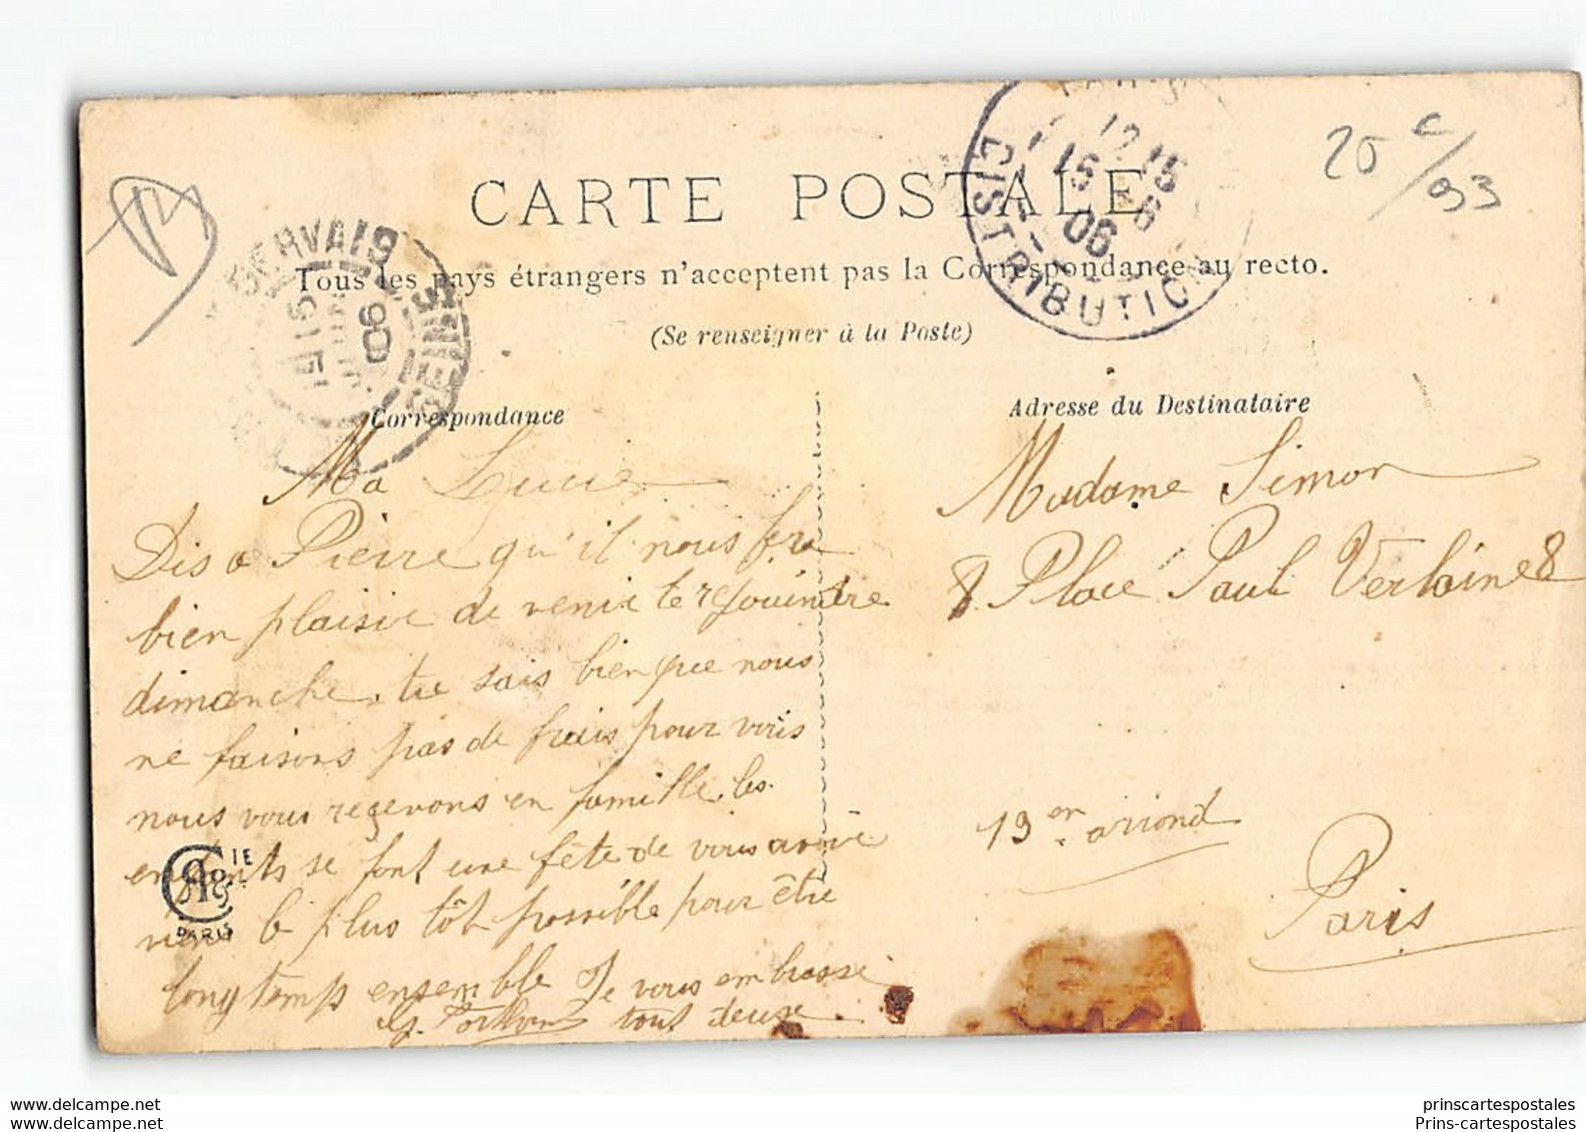 CARTE POSTALE
Tous les pays étrangers n'acceptent pas la Correspondance au recto.
(Se renseigner à la Poste)
20 c/93
SERVAIS
SEINE
15
06
PARIS
12 15
15 -6
06
DISTRIBUTION
Correspondance
Ma Lucie
Dis a Pierre qu'il nous fera
bien plaisir de venir te rejouindre
dimanche. tu sais bien que nous
ne faisons pas de frais pour vous
nous vous reçevons en famille. les
enfants se font une fête de vous avoir
viens le plus tôt possible pour être
longtemps ensemble Je vous embrasse
G. tout deux.
Adresse du Destinataire
Madame Simon
8. Place Paul Verlaine 8
13 en arriond
Paris
CIE
PARIS
www.delcampe.net
prinscartespostales
Prins-cartespostales